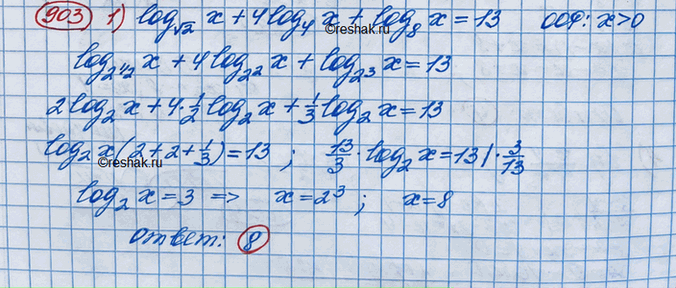 903 1) log_{√2} x + 4log_4 x + log_8 x = 13 ООФ: x>0
©reshak.ru
log_{2^{1/2}} x + 4log_{2^2} x + log_{2^3} x = 13
2log_2 x + 4·\frac{1}{2}log_2 x + \frac{1}{3}log_2 x = 13
log_2 x(2+2+\frac{1}{3}) = 13 ; \frac{13}{3}·log_2 x = 13 |·\frac{3}{13}
©reshak.ru
log_2 x = 3 => x = 2^3 ; x = 8
ответ: 8